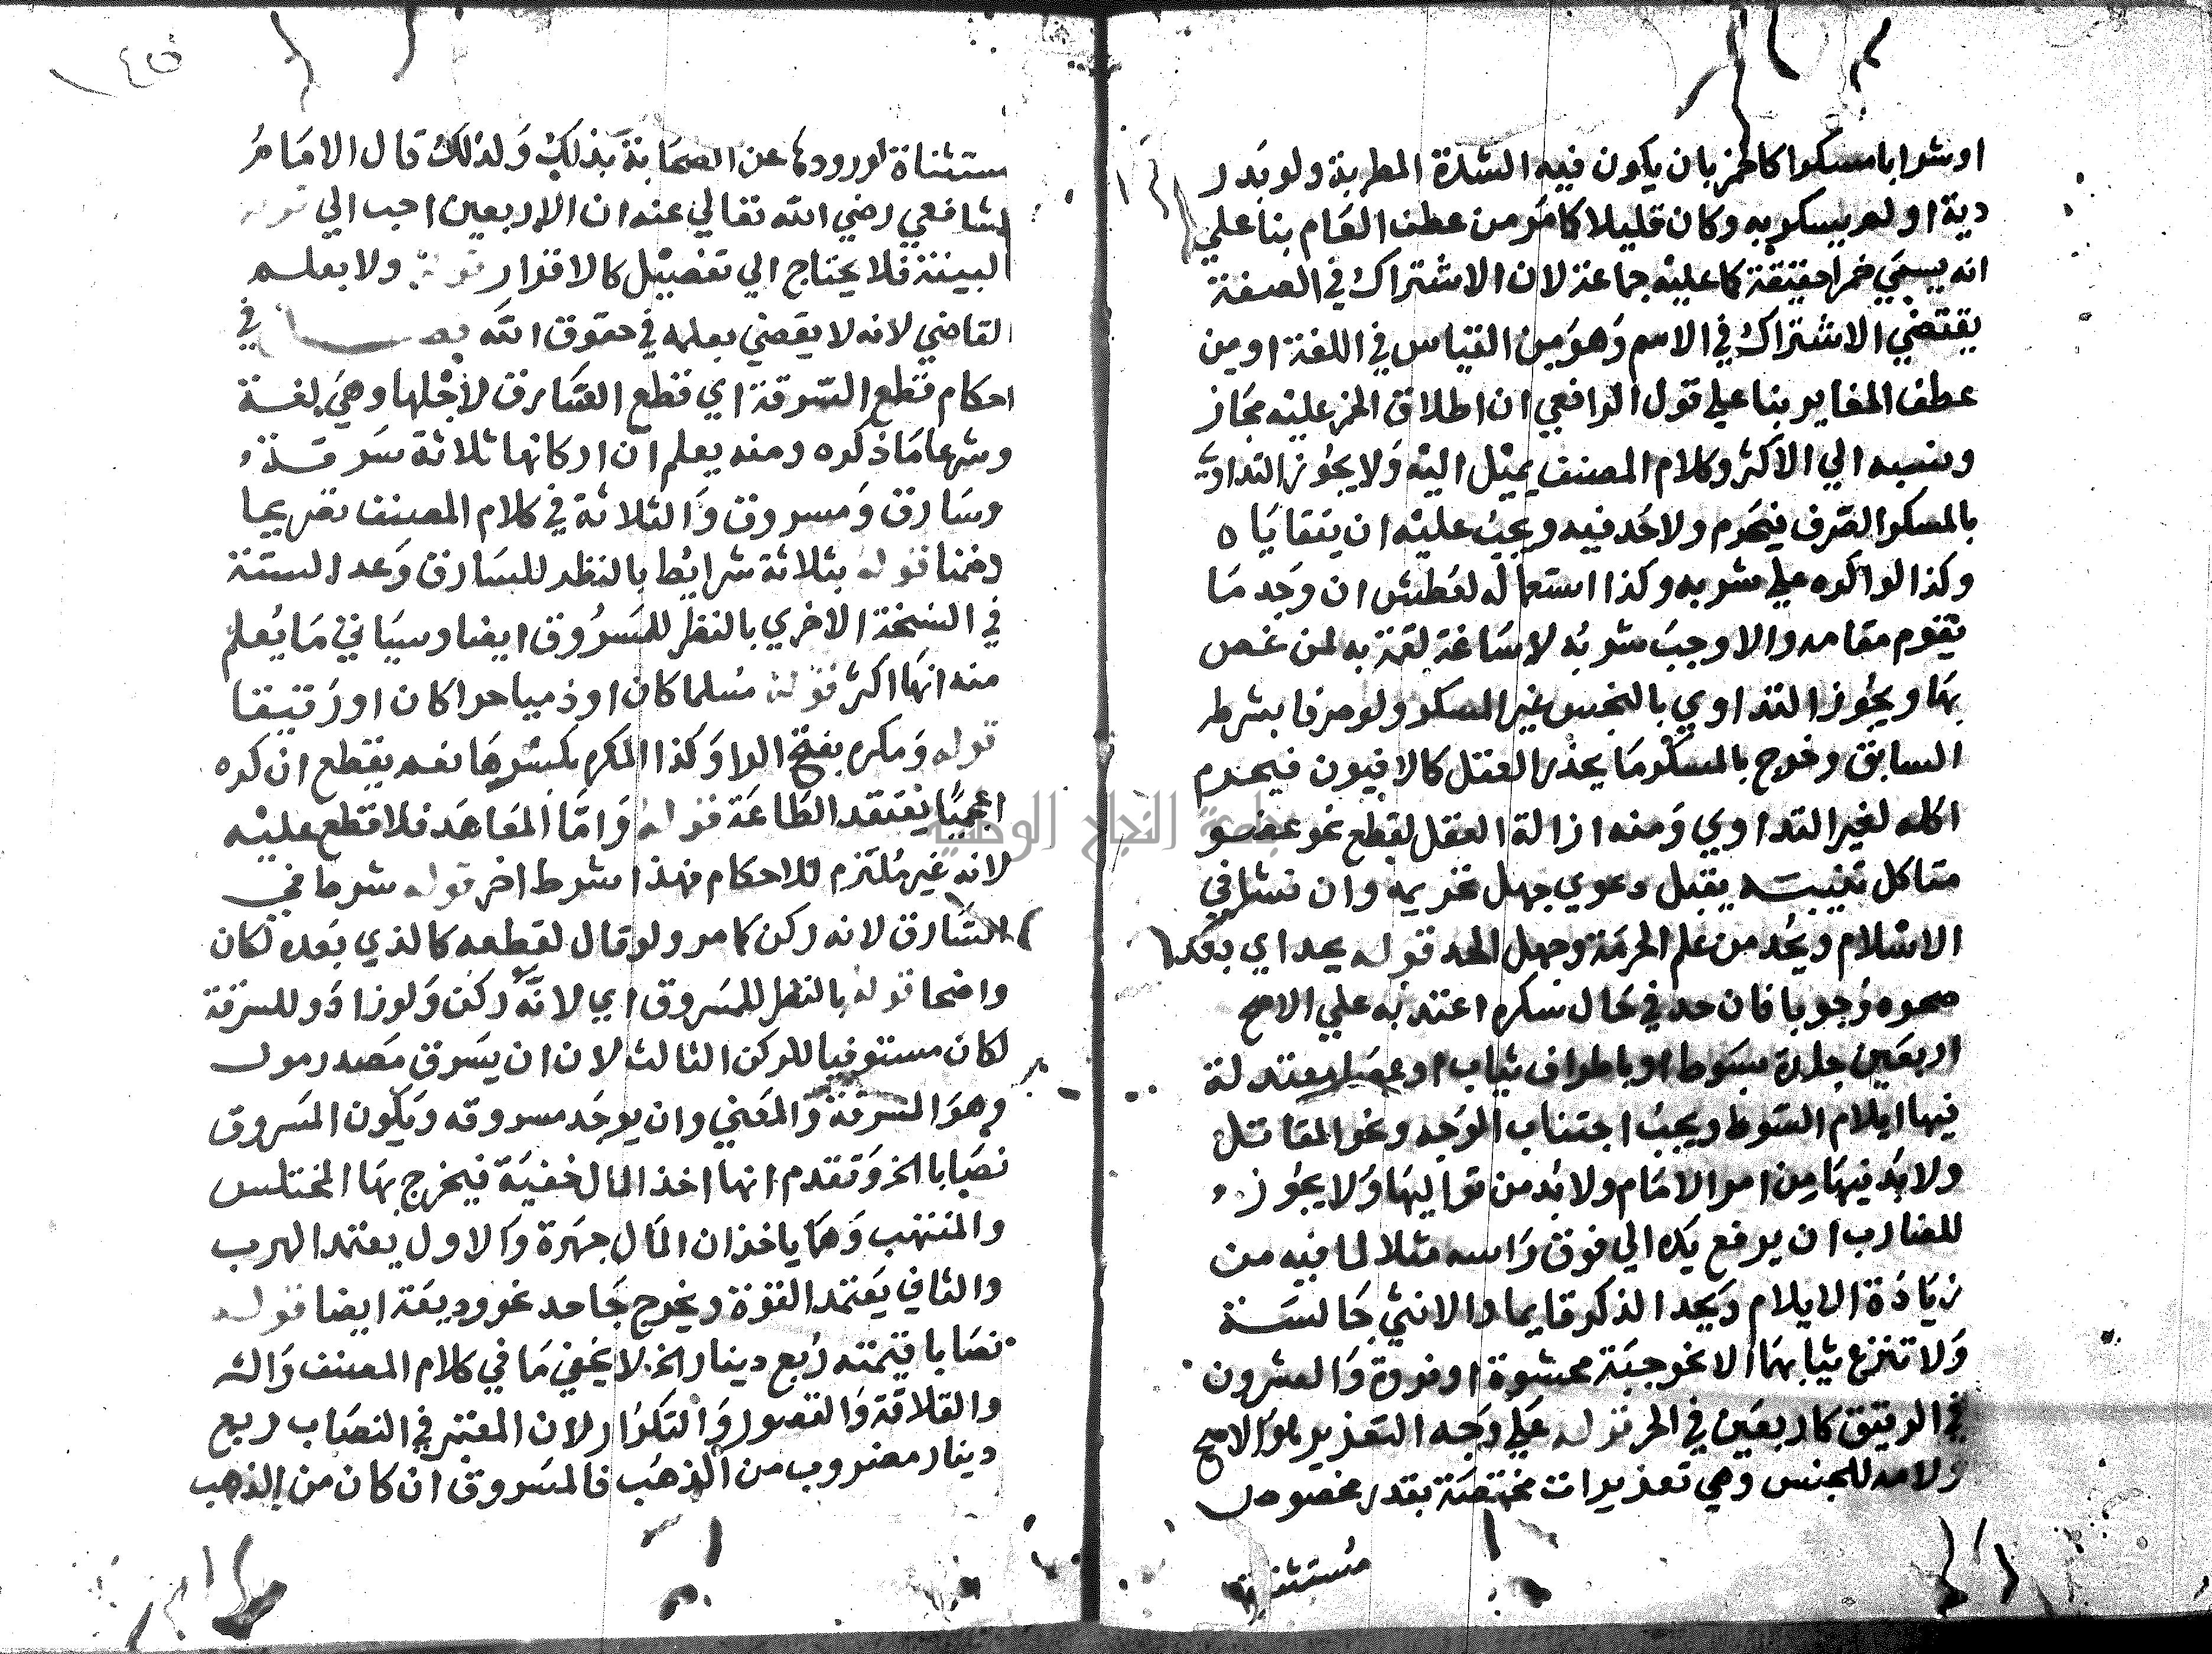 او شرابا مسكرا كالخمر بان يكون فيه الشدة المطربة ولو بدر
دية او لم يسكر به وكان قليلا كما مر من عطف العام بنا علي
انه يسمي خمرا حقيقة كما عليه جماعة لان الاشتراك في الصفة
يقتضي الاشتراك في الاسم وهو من القياس في اللغة او من
عطف المغاير بنا علي قول الرافعي ان اطلاق الخمر عليه مجاز
ونسبه الي الاكثر وكلام المصنف يميل اليه ولا يجوز التداوي
بالمسكر الصرف فيحرم ولا حد فيه ويجب عليه ان يتقاياه
وكذا لو اكره علي شربه وكذا استعماله لعطش ان وجد ما
يقوم مقامه والا وجب شربه لاساغة لقمة به لمن غص
بها ويجوز التداوي بالنجس غير المسكر ولو صرفا بشرطه
السابق وخرج بالمسكر ما يخدر العقل كالافيون فيحرم
اكله لغير التداوي ومنه ازالة العقل لقطع نحو عضو
متاكل تنبيه يقبل دعوي جهل تحريمه وان نشا في
الاسلام ويحد من علم الحرمة وجهل الحد قوله يحد اي بعد
صحوه وجوبا فان حد في حال سكره اعتد به علي الاصح
اربعين جلدة بسوط او باطراف ثياب او عصا معتدلة
فيها ايلام السوط ويجب اجتناب الوجه ونحو المقاتل
ولا بد فيها من امر الامام ولا بد من تواليها ولا يجوز
للضارب ان يرفع يده الي فوق راسه مثلا لما فيه من
زيادة الايلام ويحد الذكر قايما والانثي جالسة
ولا تنزع ثيابهما الا نحو جبة محشوة او فروة والعشرون
في الرقيق كاربعين في الحر قوله علي وجه التعزير هو الاصح
ولامه للجنس وهي تعزيرات مختصة بقدر مخصوص
مستثناة
١٤٥
مستثناة لورودها عن الصحابة بذلك ولذلك قال الامام
الشافعي رضي الله تعالي عنه ان الاربعين احب الي قوله
البينة فلا يحتاج الي تفصيل كالاقرار قوله ولا بعلم
القاضي لانه لا يقضي بعلمه في حقوق الله فصل في
احكام قطع السرقة اي قطع السارق لاجلها وهي لغة
وشرعا ما ذكره ومنه يعلم ان اركانها ثلاثة سرقة
وسارق ومسروق والثلاثة في كلام المصنف تصريحا
وضمنا قوله بثلاثة شرايط بالنظر للسارق وعد الستة
في النسخة الاخري بالنظر للمسروق ايضا وسياتي ما يعلم
منه انها اكثر قوله مسلما كان او ذميا حرا كان او رقيقا
قوله ومكره بفتح الرا وكذا المكره بكسرها نعم يقطع ان كره
اعجميا يعتقد الطاعة قوله واما المعاهد فلا قطع عليه
لانه غير ملتزم للاحكام فهذا شرط اخر قوله شرط في
السارق لانه ركن كما مر ولو قال لقطعه كالذي بعده لكان
واضحا قوله بالنظر للمسروق اي لانه ركن ولو زاد وللسرقة
لكان مستوفيا للركن الثالث لان ان يسرق مصدر مول
وهو السرقة والمعني وان يوجد مسروقه ويكون المسروق
نصابا الخ وتقدم انها اخذ المال خفية فيخرج بها المختلس
والمنتهب وهما ياخذان المال جهرة والاول يعتمد الهرب
والثاني يعتمد القوة ويخرج جاحد نحو وديعة ايضا قوله
نصابا قيمته ربع دينار الخ لا يخفي ما في كلام المصنف والش
والقلاقة والقصور والتكرار لان المعتبر في النصاب ربع
دينار مضروب من الذهب فالمسروق ان كان من الذهب
جامعة النجاح الوطنية